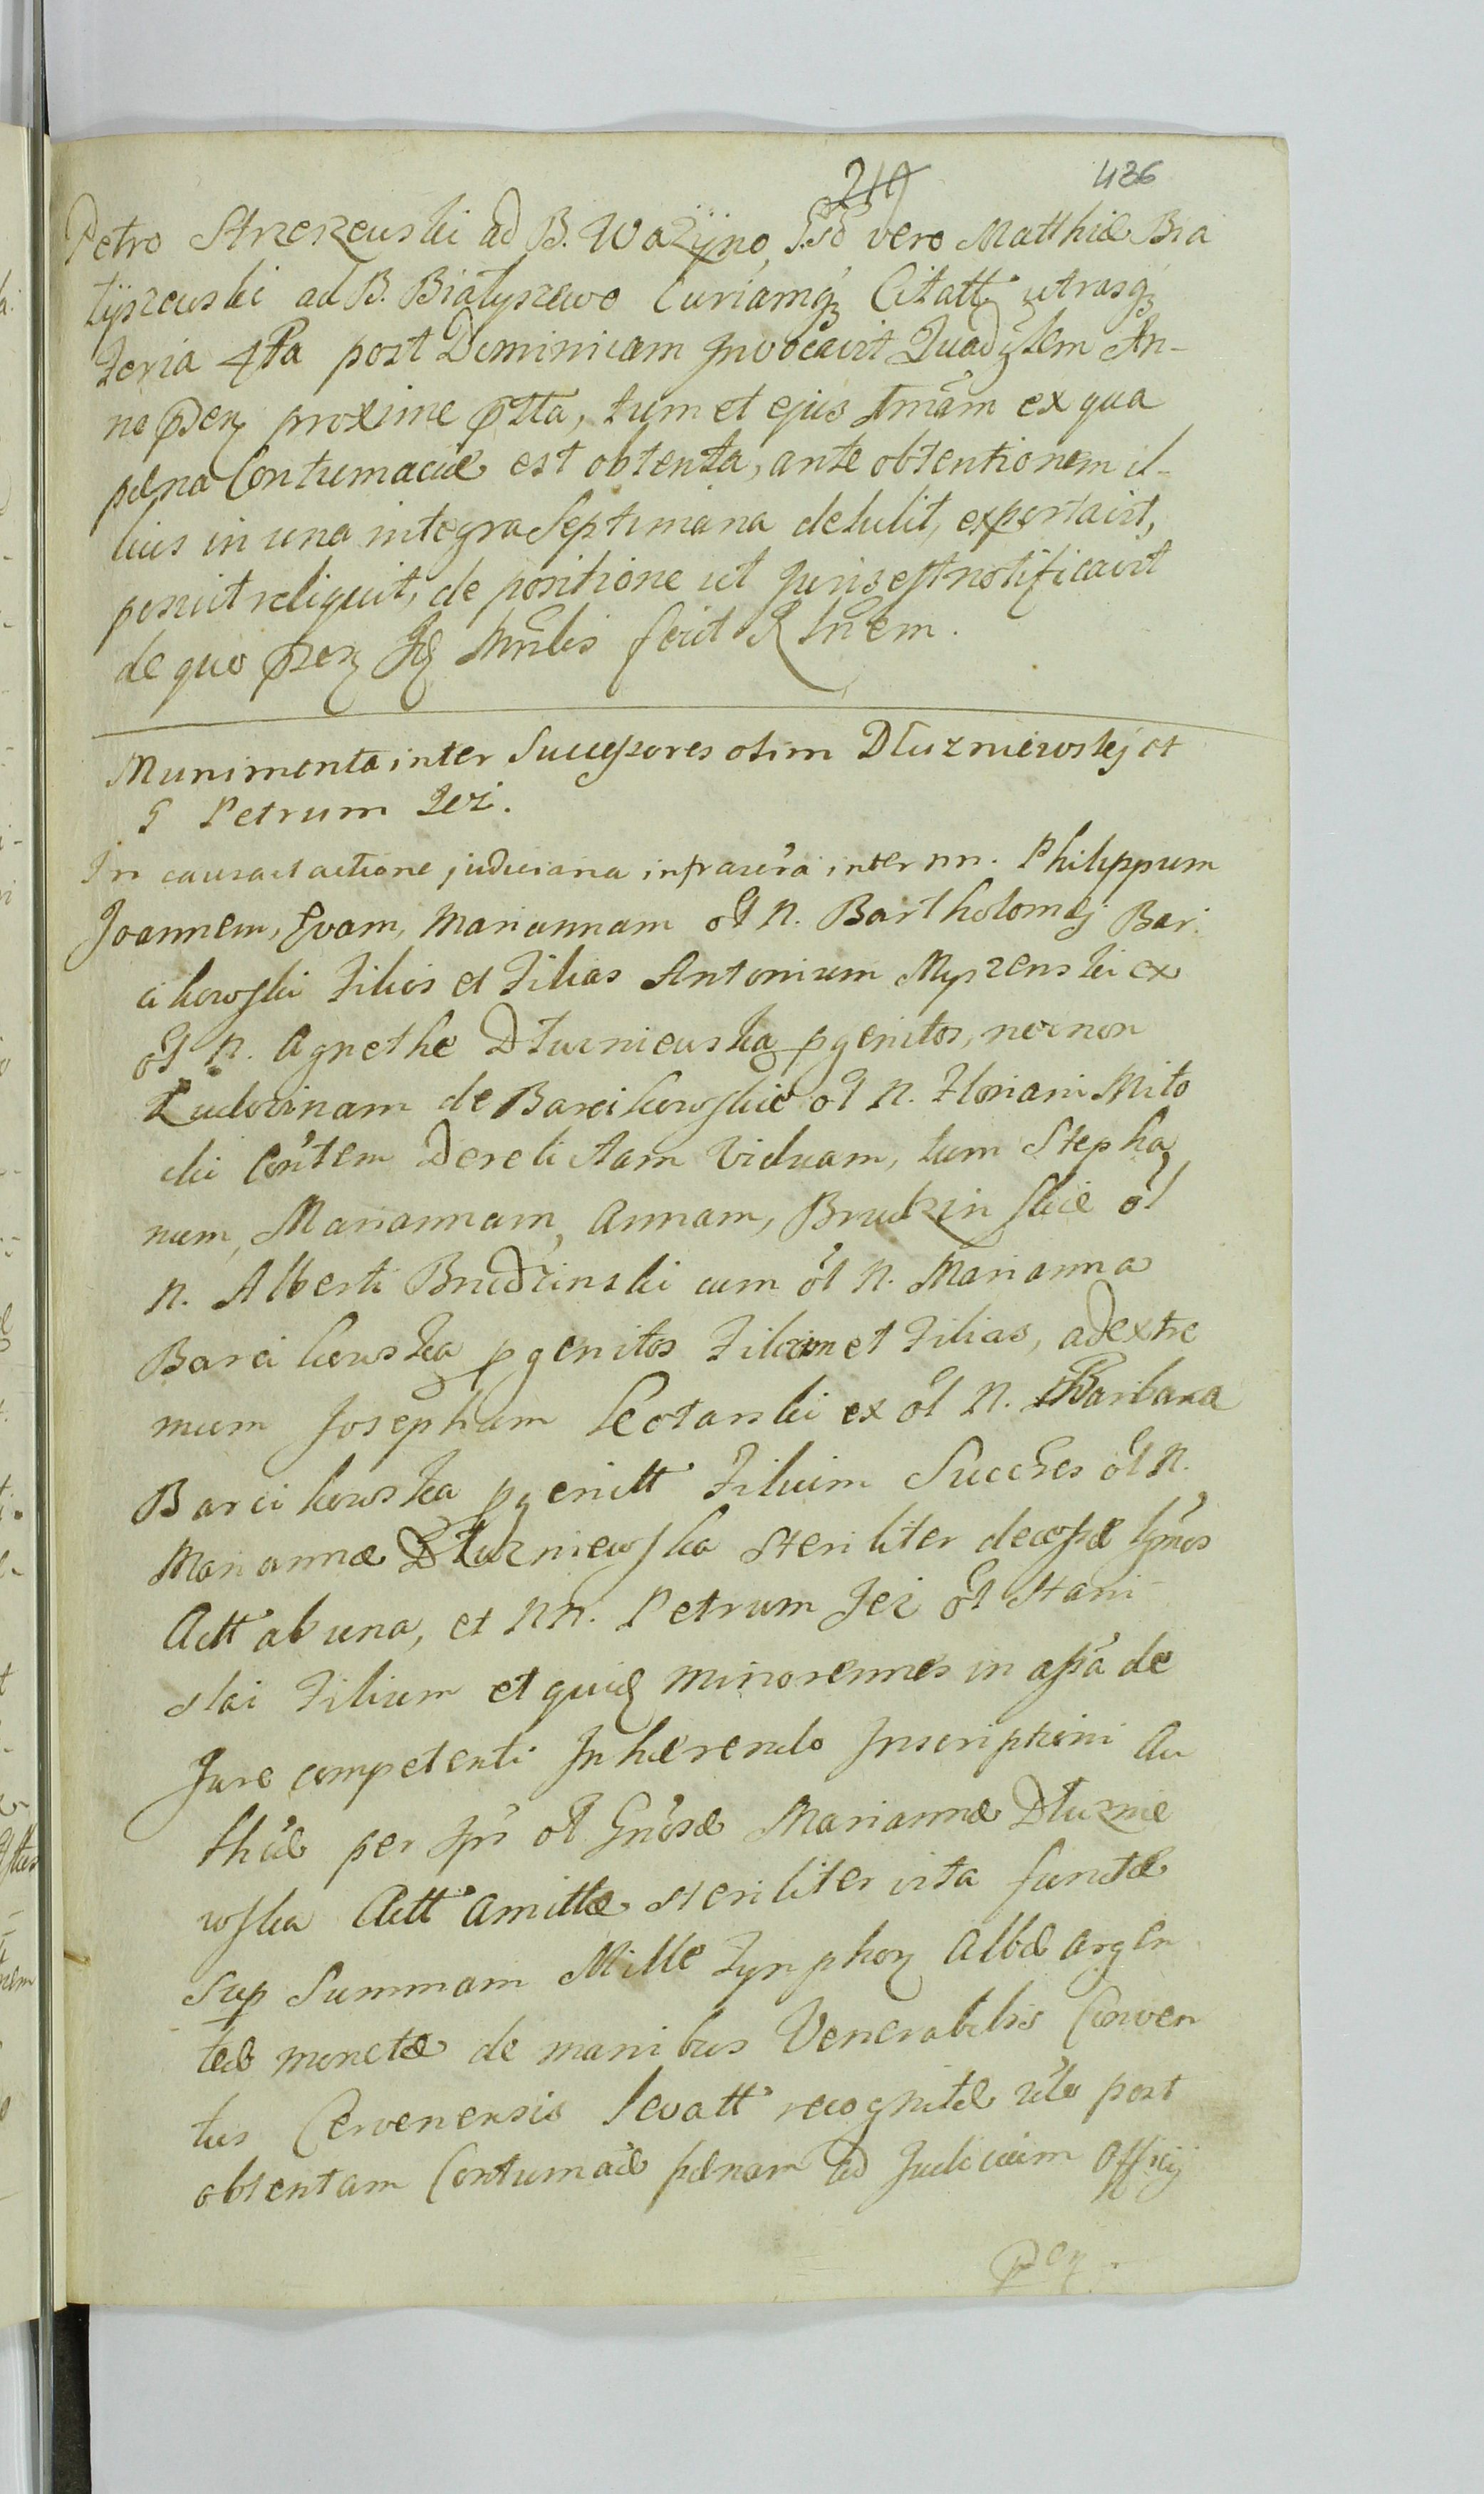 219 436
Petro Strzeszewski ad B. Ważÿno, vero Matthiæ Bia
łÿszewski ad B. Białyszewo Curiamq̃ Citatt utrasq̃
feria 4ta post Dominicam Invocavit An-
no proxime ptta, tum et ejus tmam ex qua
pæna Contumaciæ est obtenta, ante obtentionem il-
lius in una integra Septimana detulit, exportavit,
posuit reliquit, de positione ut Juris est notificavit
de quo fecit
Munimenta inter Successores olim Dłuzniewskiej et
G Petrum Jeż.
In causa et actione judiciaria infrascra inter nn. Philippum
Joannem, Evam, Mariannam ol N. Bartholomæj Bar:
cikowski Filios et Filias Antonium Myszenski ex
ol N. Agnethe Dłuzniewska pgenitos, nec non
Ludovinam de Barcikowskie ol N. Floriani Miło
cki Con̄tem Derelictam Viduam, tum Stepha
num, Mariannam, Annam, Brudzinskie ol
N. Alberti Brudzinski cum ol N. Marianna
Barcikowska pgenitos Filium et Filias, ad extre
mum Josephum Kotarski ex ol N. Barbara
Barcikowska pgenitt Filium Succes̃es ol N.
Mariannæ Dłuzniewska steriliter decessæ
Actt ab una, et NN. Petrum Jeż ol Stani
slai Filium et quid minorennes in assa de
Jure competenti Inhærendo Inscriptioni Au
thcæ per ol Gn̄osæ Mariannæ Dłuznie
wska Actt Amittæ steriliter vita functæ
Sup Summam Mille Tynphon Albæ argen
teæ monetæ de manibus Venerabilis Conven
tus Cervenensis levatt recognitæ post
obtentam Contumaciæ pænam ad Judicium Officij